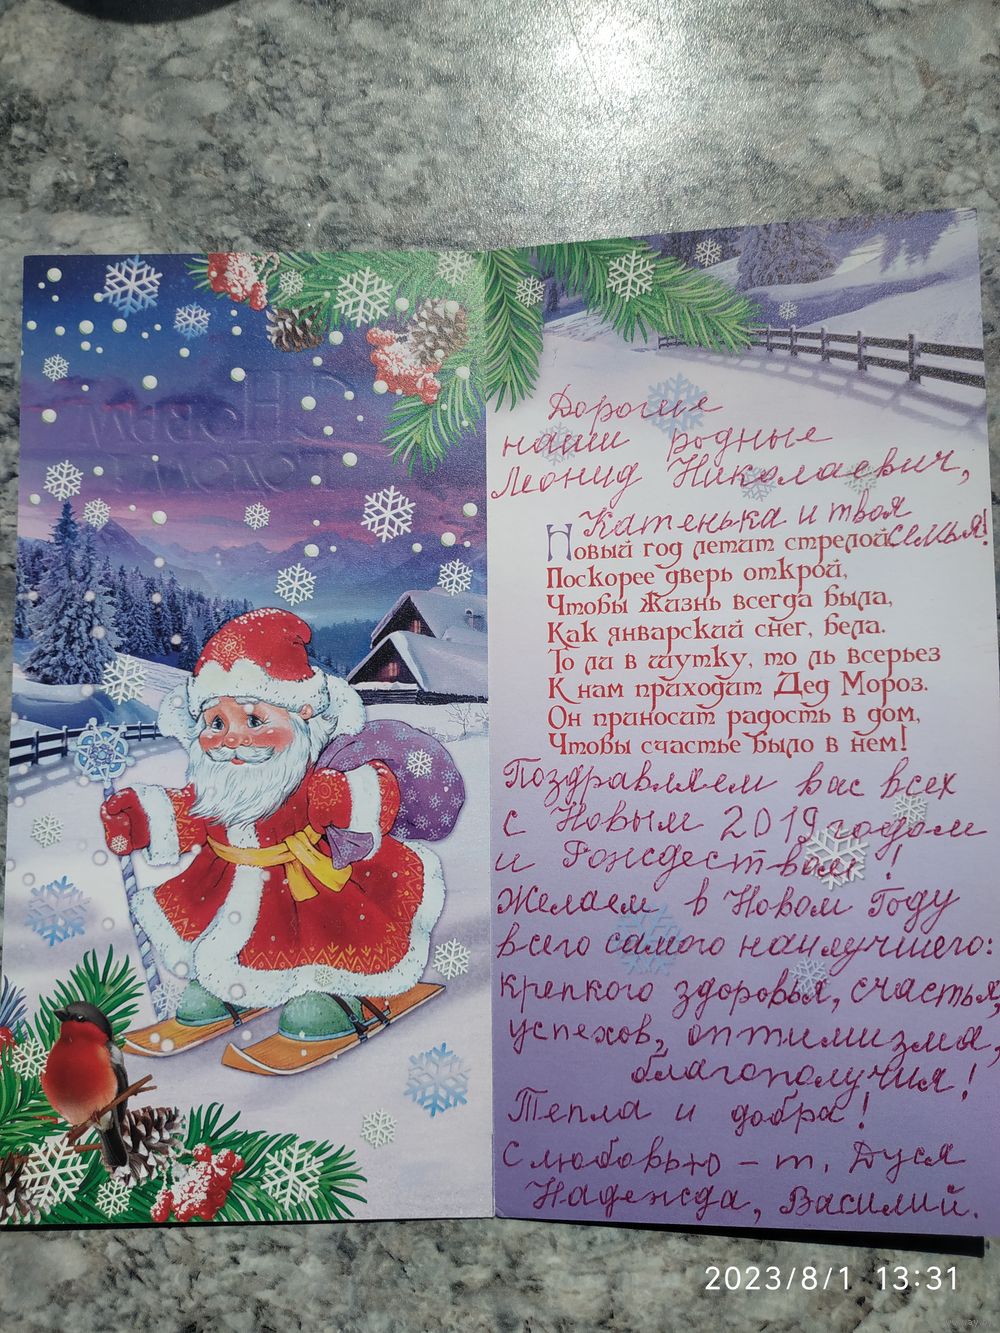 Дорогие
наши родные
Леонид Николаевич,
Катенька и твоя
семья!
Новый год летит стрелой
Поскорее дверь открой,
Чтобы Жизнь всегда была,
Как январский снег, бела.
То ли в шутку, то ль всерьез
К нам приходит Дед Мороз.
Он приносит радость в дом,
Чтобы счастье было в нем!
Поздравляем вас всех
с Новым 2019 годом
и Рождеством!
Желаем в Новом Году
всего самого наилучшего:
крепкого здоровья, счастья,
успехов, оптимизма,
благополучия!
Тепла и добра!
С любовью – т. Дуся
Надежда, Василий.
2023/8/1 13:31